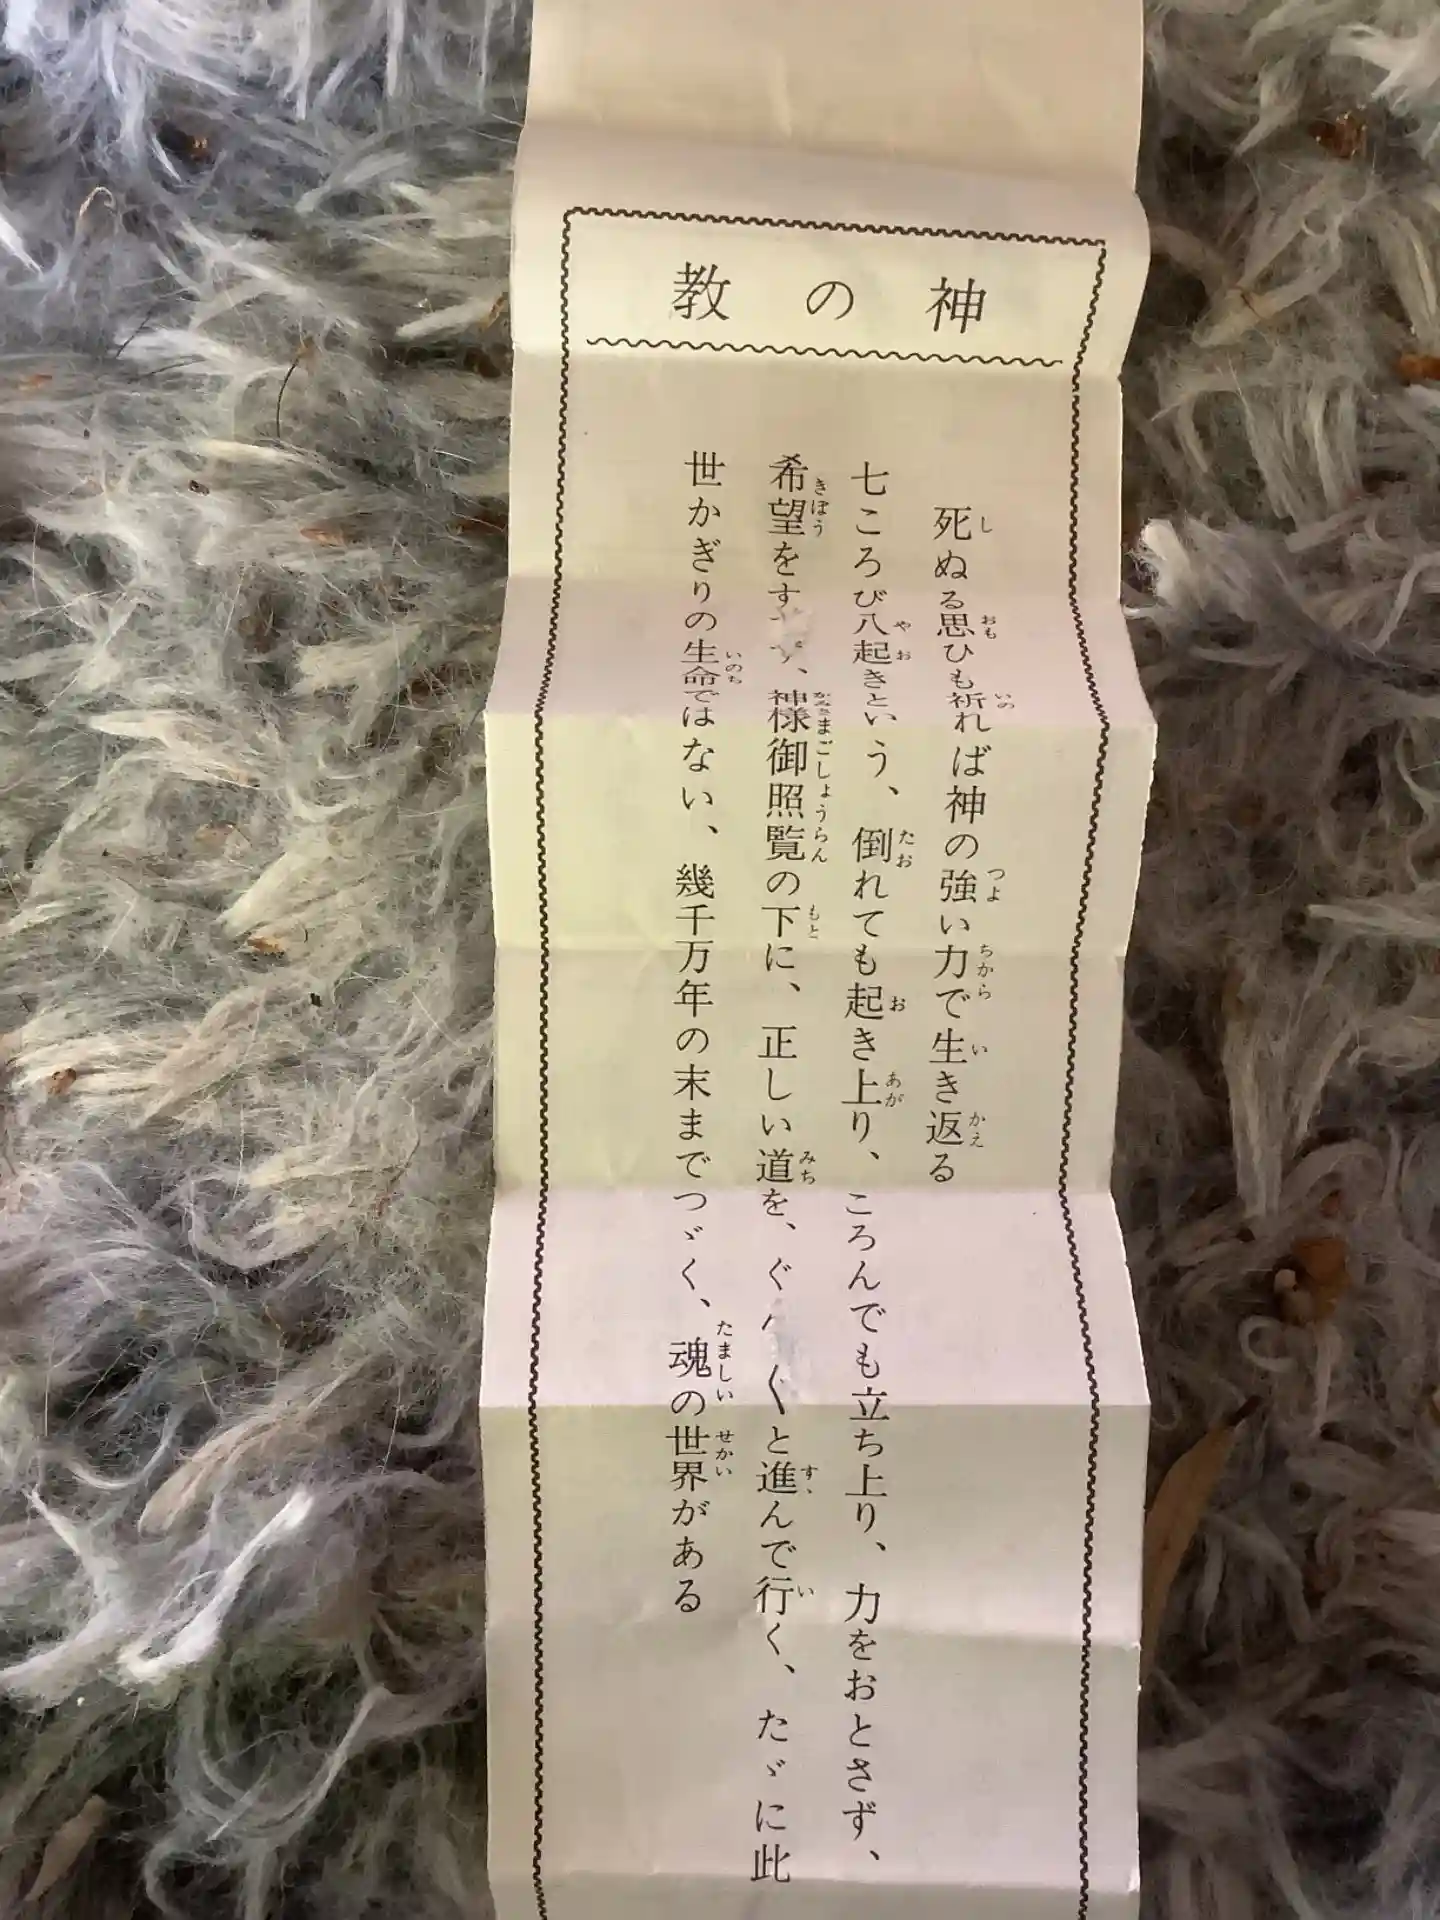 神の教
死ぬる思ひも祈れば神の強い力で生き返る
七ころび八起きという、倒れても起き上り、ころんでも立ち上り、力をおとさず、
希望をす、神様御照覧の下に、正しい道を、ぐくと進んで行く、たゞに此
世かぎりの生命ではない、幾千万年の末までつゞく、魂の世界がある